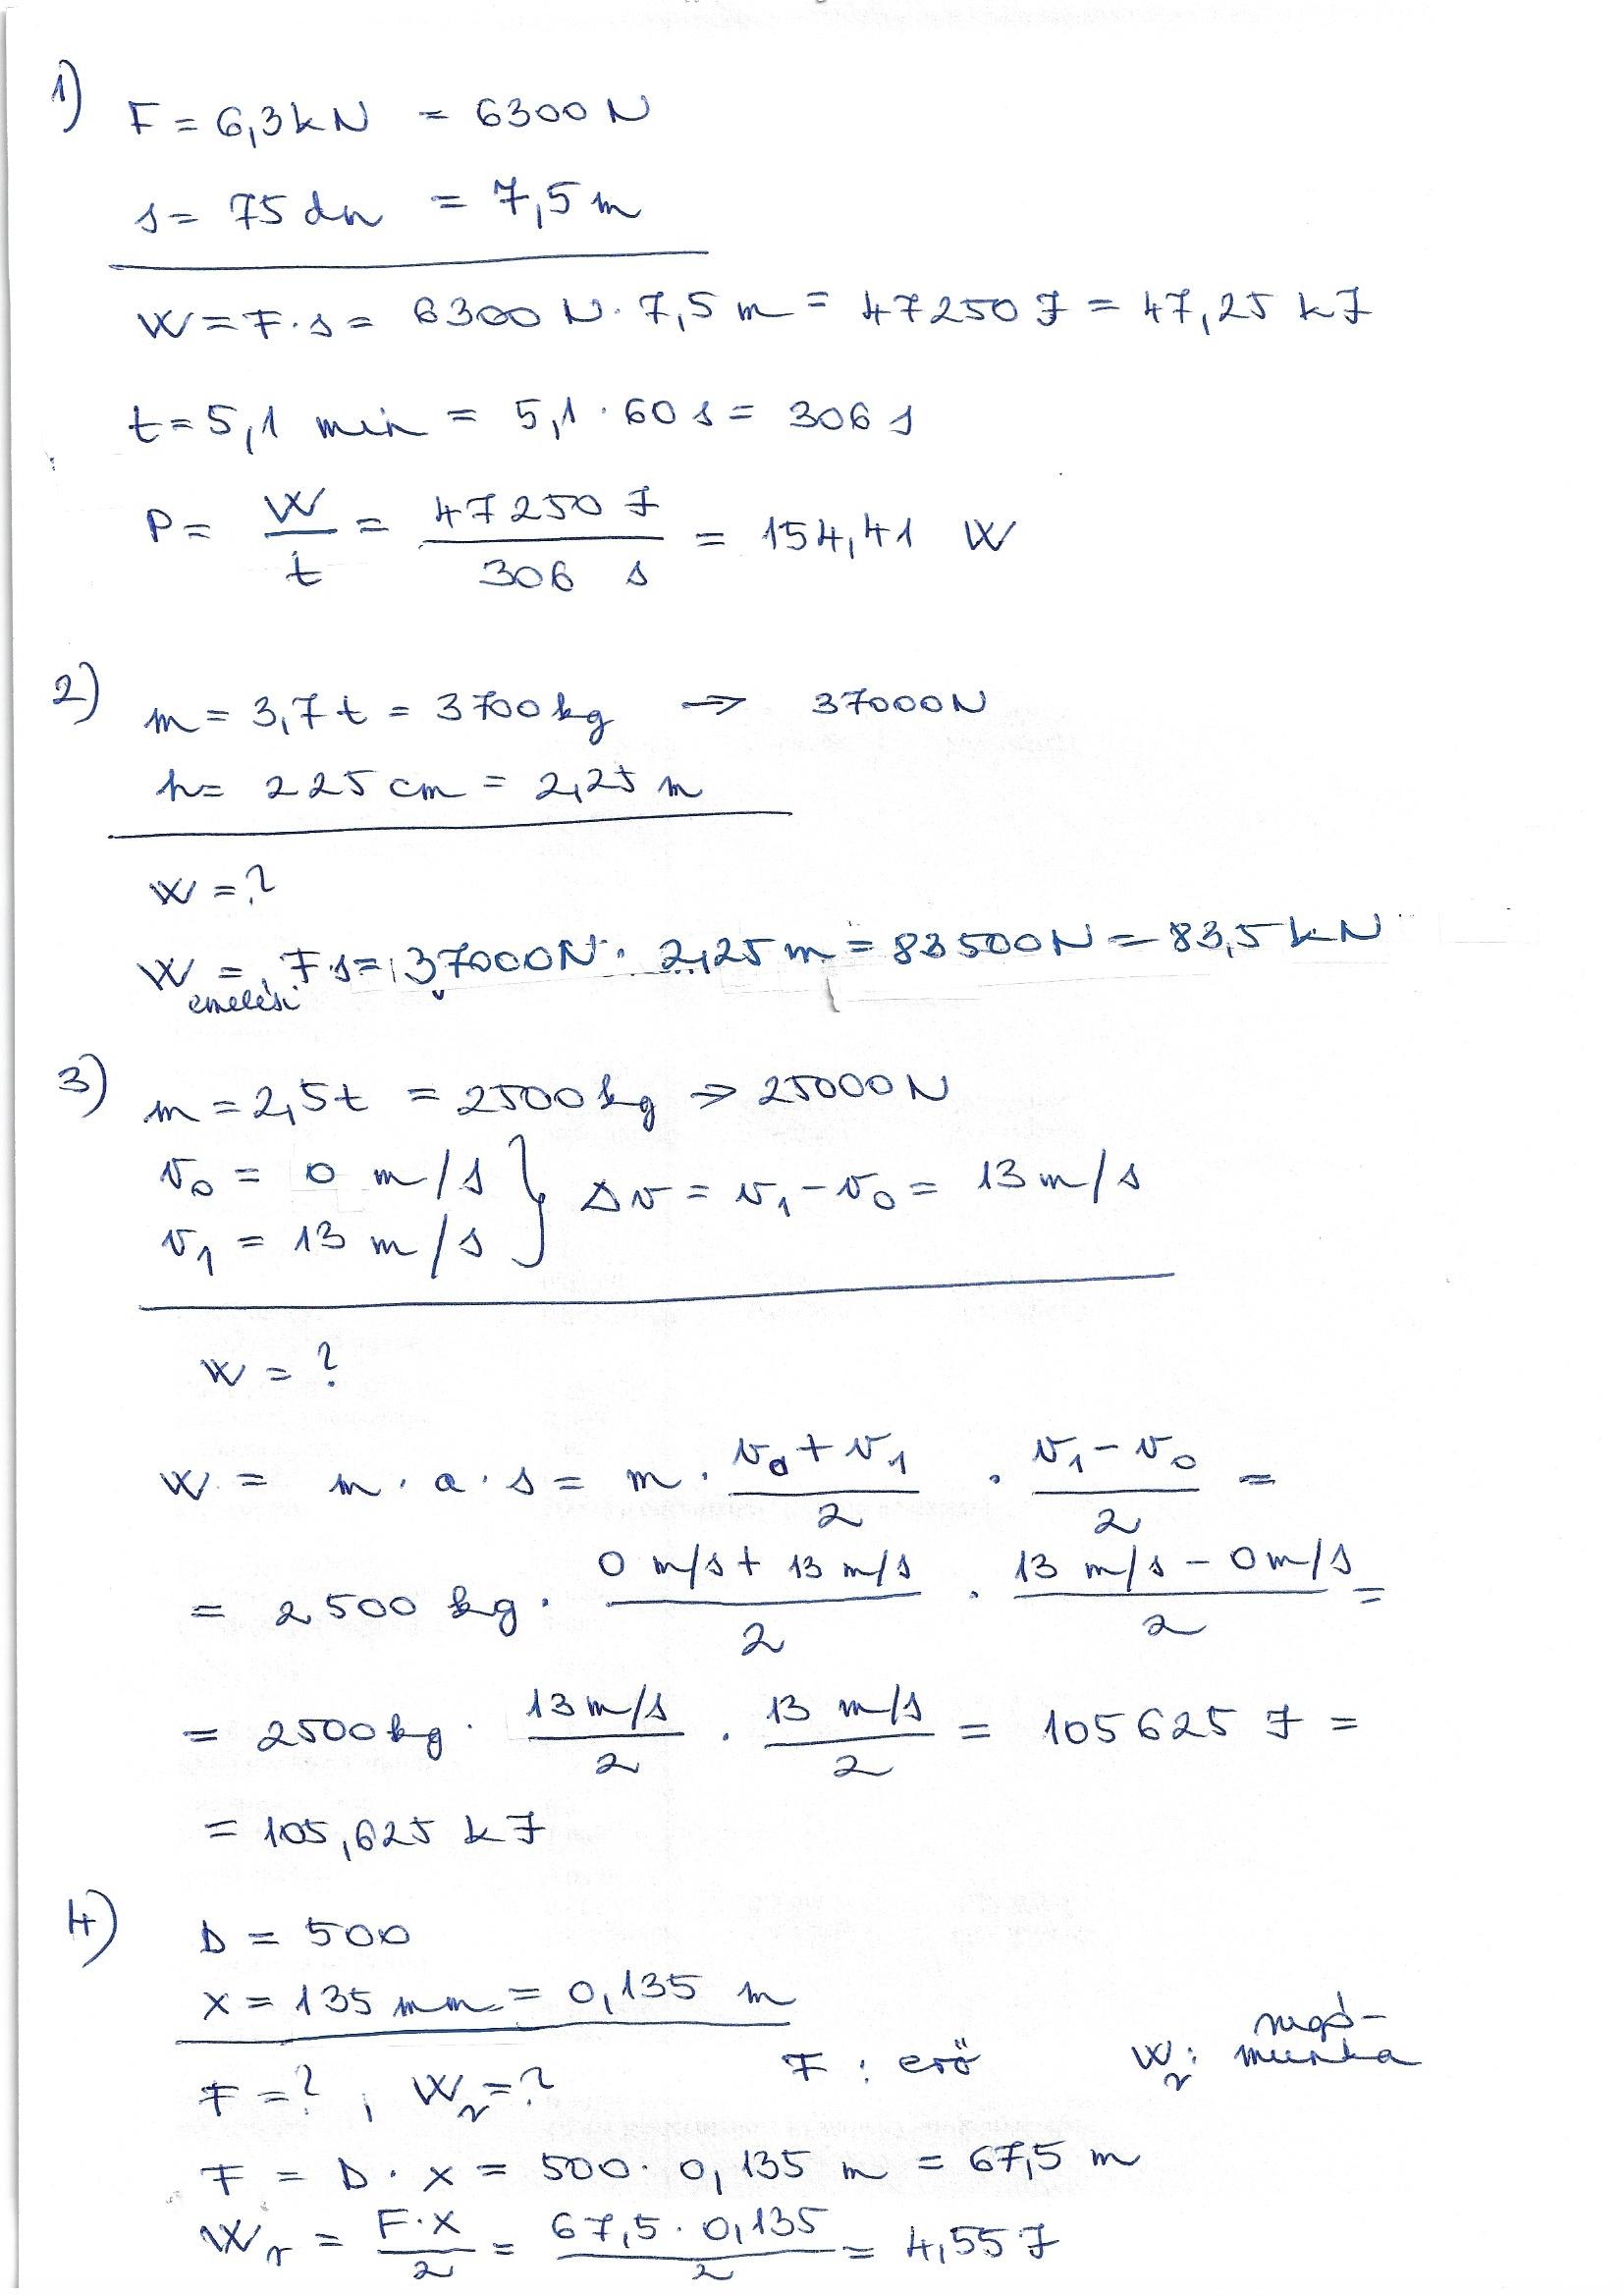 1) F = 6,3 kN = 6300 N
s = 75 dm = 7,5 m
W = F · s = 6300 N · 7,5 m = 47250 J = 47,25 kJ
t = 5,1 min = 5,1 · 60 s = 306 s
P = W/t = 47250 J / 306 s = 154,41 W
2) m = 3,7 t = 3700 kg → 37000 N
h = 225 cm = 2,25 m
W = ?
W emelési = F · s = 37000 N · 2,25 m = 83500 N = 83,5 kN
3) m = 2,5 t = 2500 kg ⇒ 25000 N
v₀ = 0 m/s } Δv = v₁ - v₀ = 13 m/s
v₁ = 13 m/s
W = ?
W = m · a · s = m · (v₀ + v₁)/2 · (v₁ - v₀)/2 =
= 2500 kg · (0 m/s + 13 m/s)/2 · (13 m/s - 0 m/s)/2 =
= 2500 kg · (13 m/s)/2 · (13 m/s)/2 = 105625 J =
= 105,625 kJ
4) D = 500
x = 135 mm = 0,135 m
F = ? , Wᵣ = ? F : erő Wᵣ : rugó-
munka
F = D · x = 500 · 0,135 m = 67,5 m
Wᵣ = F·x/2 = 67,5 · 0,135/2 = 4,55 J